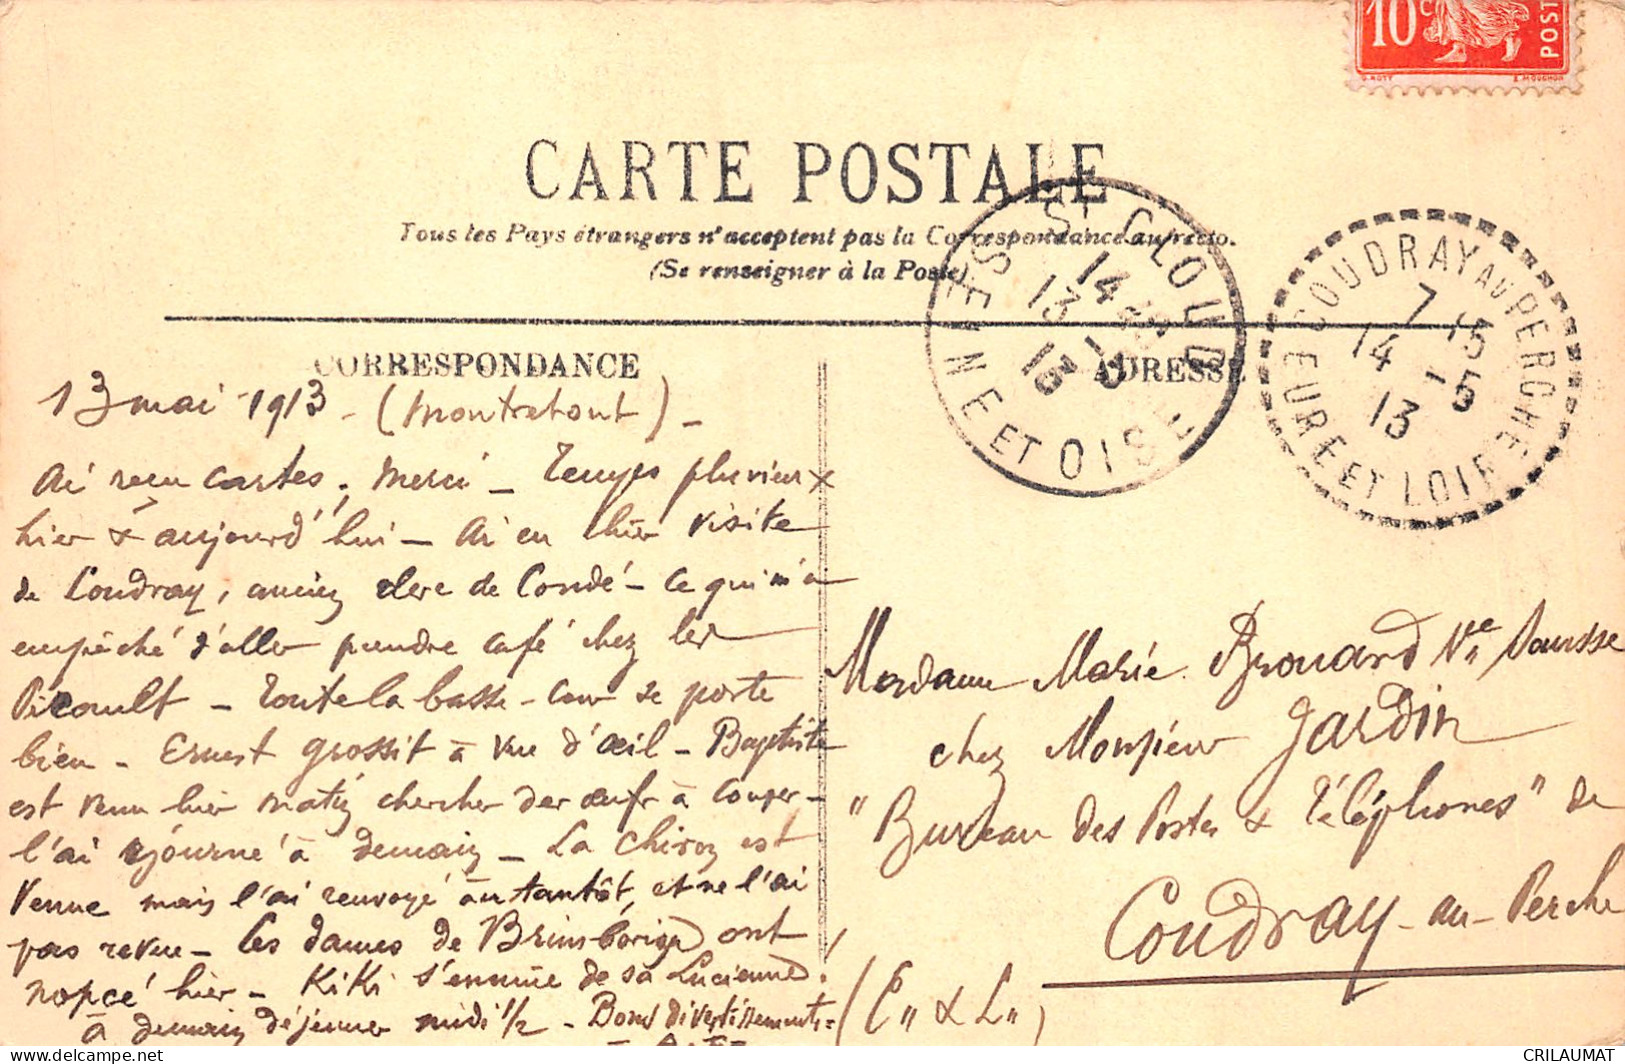 10c
POST
O. ROTY
E. MOUCHON
CARTE POSTALE
Tous les Pays étrangers n'acceptent pas la Correspondance au recto.
(Se renseigner à la Poste)
ST CLOUD
14
13-5
13
SEINE ET OISE
COUDRAY AU PERCHE
7 15
14-5
13
EURE ET LOIR
CORRESPONDANCE
ADRESSE
13 mai 1913 - (Montretout) -
Ai reçu cartes. Merci - Temps pluvieux
hier & aujourd'hui - Ai eu hier visite
de Coudray, ancien clerc de Condé - Ce qui m'a
empêché d'aller prendre café chez les
Picault - Toute la basse-cour se porte
bien - Ernest grossit à vue d'œil - Baptiste
est venu hier matin chercher des œufs à couper -
l'ai ajourné à demain - La Chiron est
venue mais l'ai renvoyé à un tantôt, et ne l'ai
pas revue - Les dames de Brimborion ont
nopcé hier - KiKi s'ennuie de sa Lucienne!
à demain déjeuner midi 1/2 - Bons divertissements =
Madame Marie Brouard Vve
chez Monsieur Jardin
"Bureau des Postes & Téléphones" de
Coudray-au-Perche
(E" & L")
CRILAUMAT